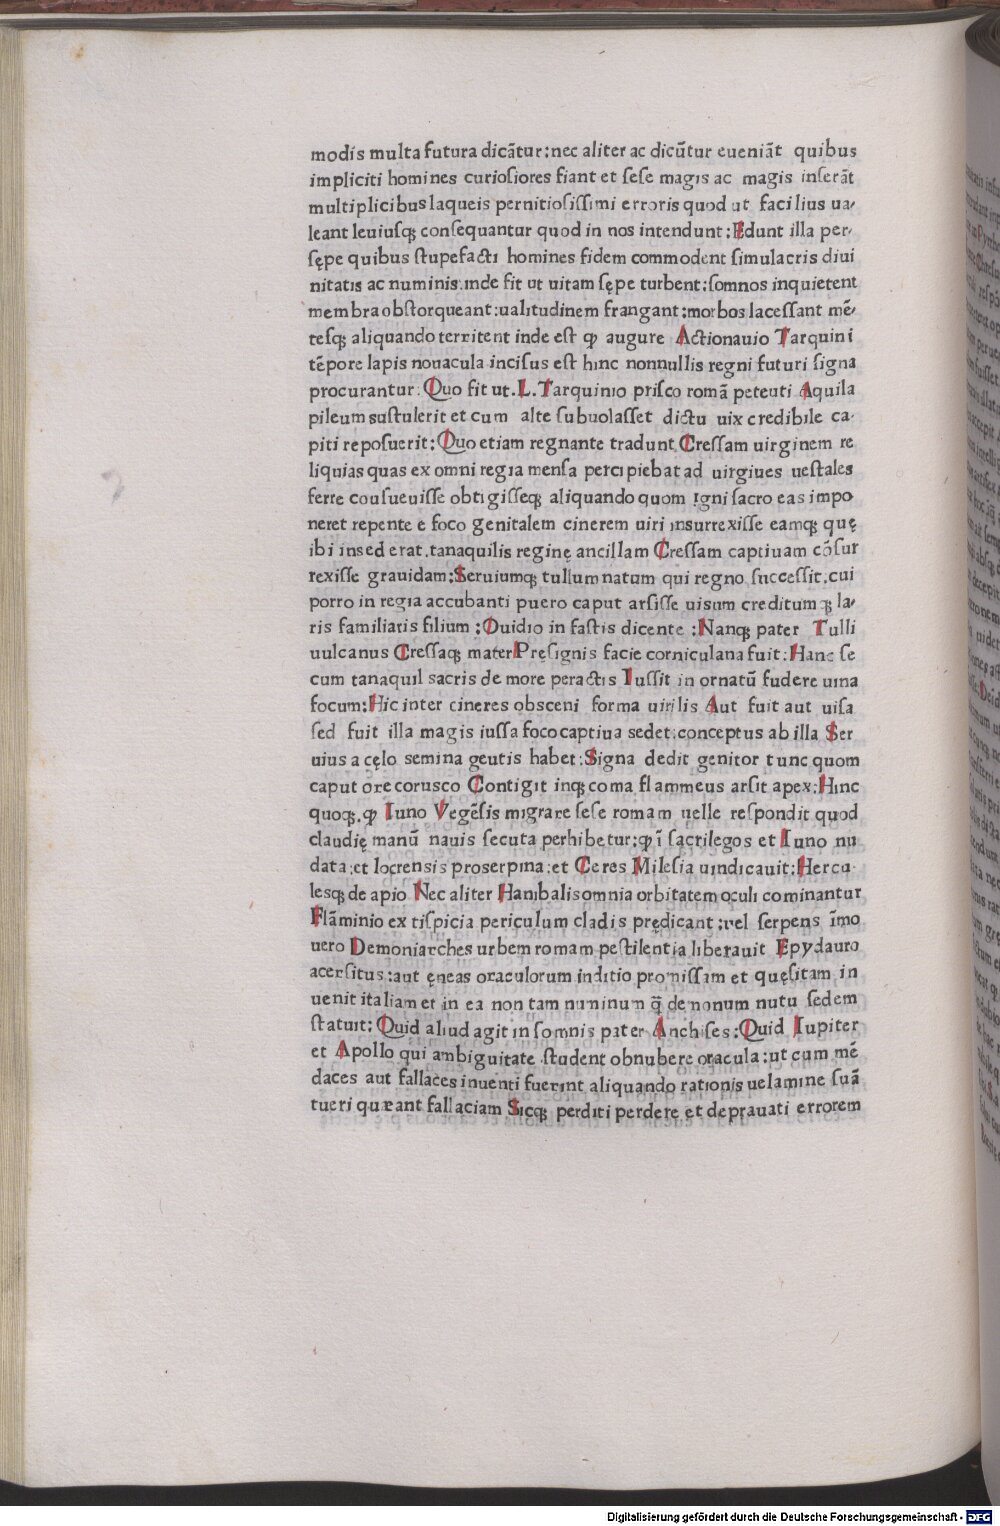 modis multa futura dicãtur: nec aliter ac dicũtur eueniãt quibus
impliciti homines curiosiores fiant et sese magis ac magis inserãt
multiplicibus laqueis pernitiosissimi erroris quod ut facilius ua-
leant leuiusq; consequantur quod in nos intendunt: Edunt illa per-
sępe quibus stupefacti homines fidem commodent simulacris diui
nitatis ac numinis.inde fit ut uitam sępe turbent: somnos inquietent
membra obstorqueant: ualitudinem frangant: morbos lacessant mẽ-
tesq; aliquando territent inde est ꝙ augure Actionauio Tarquini
tẽpore lapis nouacula incisus est hinc nonnullis regni futuri signa
procurantur. Quo fit ut.L.Tarquinio prisco romã peteuti Aquila
pileum sustulerit et cum alte subuolasset dictu uix credibile ca-
piti reposuerit: Quo etiam regnante tradunt Cressam uirginem re
liquias quas ex omni regia mensa percipiebat ad uirgiues uestales
ferre cousueuisse obtigisseq; aliquando quom igni sacro eas impo
neret repente e foco genitalem cinerem uiri insurrexisse eamq; quę
ibi insederat.tanaquilis reginę ancillam Cressam captiuam cõsur
rexisse grauidam: Seruiumq; tullum natum qui regno successit.cui
porro in regia accubanti puero caput arsisse uisum creditumq; la-
ris familiaris filium: Ouidio in fastis dicente: Nanq; pater Tulli
uulcanus Cressaq; mater Pręsignis facie corniculana fuit: Hanc se
cum tanaquil sacris de more peractis Iussit in ornatũ fudere uina
focum: Hic inter cineres obsceni forma uirilis Aut fuit aut uisa
sed fuit illa magis iussa foco captiua sedet: conceptus ab illa Ser
uius a cęlo semina geutis habet: Signa dedit genitor tunc quom
caput ore corusco Contigit inq; coma flammeus arsit apex: Hinc
quoq. ꝙ Iuno Vegẽsis migrare sese romam uelle respondit quod
claudię manũ nauis secuta perhibetur; ꝙ ĩ sacrilegos et Iuno nu
data; et locrensis proserpina: et Ceres Milesia uindicauit: Hercu-
lesq; de apio Nec aliter Hanibalis omnia orbitatem oculi cominantur
Flãminio ex tispicia periculum cladis prędicant: vel serpens ĩmo
uero Demoniarches urbem romam pestilentia liberauit Epydauro
acersitus: aut ęneas oraculorum inditio promissam et quęsitam in
uenit italiam et in ea non tam numinum q̃ demonum nutu sedem
statuit: Quid aliud agit in somnis pater Anchises: Quid Iupiter
et Apollo qui ambiguitate student obnubere oracula: ut cum mẽ
daces aut fallaces inuenti fuerint aliquando rationis uelamine suã
tueri queant fallaciam Sicq; perditi perdere et deprauati errorem
Digitalisierung gefördert durch die Deutsche Forschungsgemeinschaft - DFG